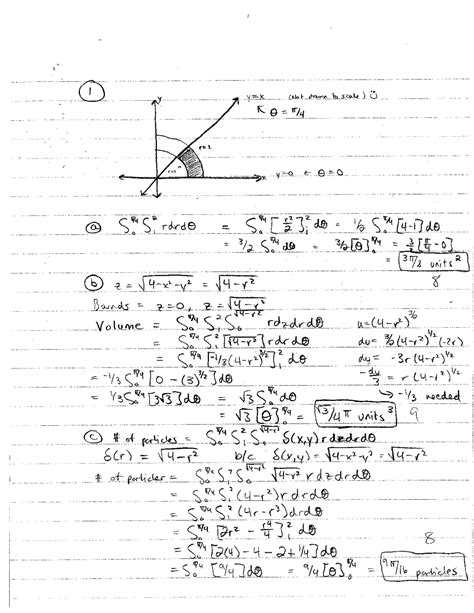 ①
y
y=x (Not drawn to scale) ☺
↖ θ = π/4
r=2
r=1
x y=0 ← θ=0
ⓐ ∫₀^π/4 ∫₁² r dr dθ = ∫₀^π/4 [r²/2]₁² dθ = 1/2 ∫₀^π/4 [4-1] dθ
= 3/2 ∫₀^π/4 dθ = 3/2 [θ]₀^π/4 = 3/2 [π/4 - 0]
= 3π/8 units²
8
ⓑ z = √(4-x²-y²) = √(4-r²)
Bounds = z=0, z=√(4-r²)
Volume = ∫₀^π/4 ∫₁² ∫₀^√(4-r²) r dz dr dθ u=(4-r²)^3/2
= ∫₀^π/4 ∫₁² [√(4-r²)] r dr dθ du = 3/2 (4-r²)^1/2 (-2r)
= ∫₀^π/4 [-1/3 (4-r²)^3/2]₁² dθ du = -3r (4-r²)^1/2
= -1/3 ∫₀^π/4 [0 - (3)^3/2] dθ -du/3 = r (4-r²)^1/2
= 1/3 ∫₀^π/4 [3√3] dθ = √3 ∫₀^π/4 dθ → -1/3 needed
= √3 [θ]₀^π/4 = √3/4 π units³ 9
ⓒ # of particles = ∫₀^π/4 ∫₁² ∫₀^√(4-r²) δ(x,y) r dz dr dθ
δ(r) = √(4-r²) b/c δ(x,y) = √(4-x²-y²) = √(4-r²)
# of particles = ∫₀^π/4 ∫₁² ∫₀^√(4-r²) √(4-r²) r dz dr dθ
= ∫₀^π/4 ∫₁² (4-r²) r dr dθ
= ∫₀^π/4 ∫₁² (4r - r³) dr dθ
= ∫₀^π/4 [2r² - r⁴/4]₁² dθ
8
= ∫₀^π/4 [2(4) - 4 - 2 + 1/4] dθ
= ∫₀^π/4 [9/4] dθ = 9/4 [θ]₀^π/4 = 9π/16 particles